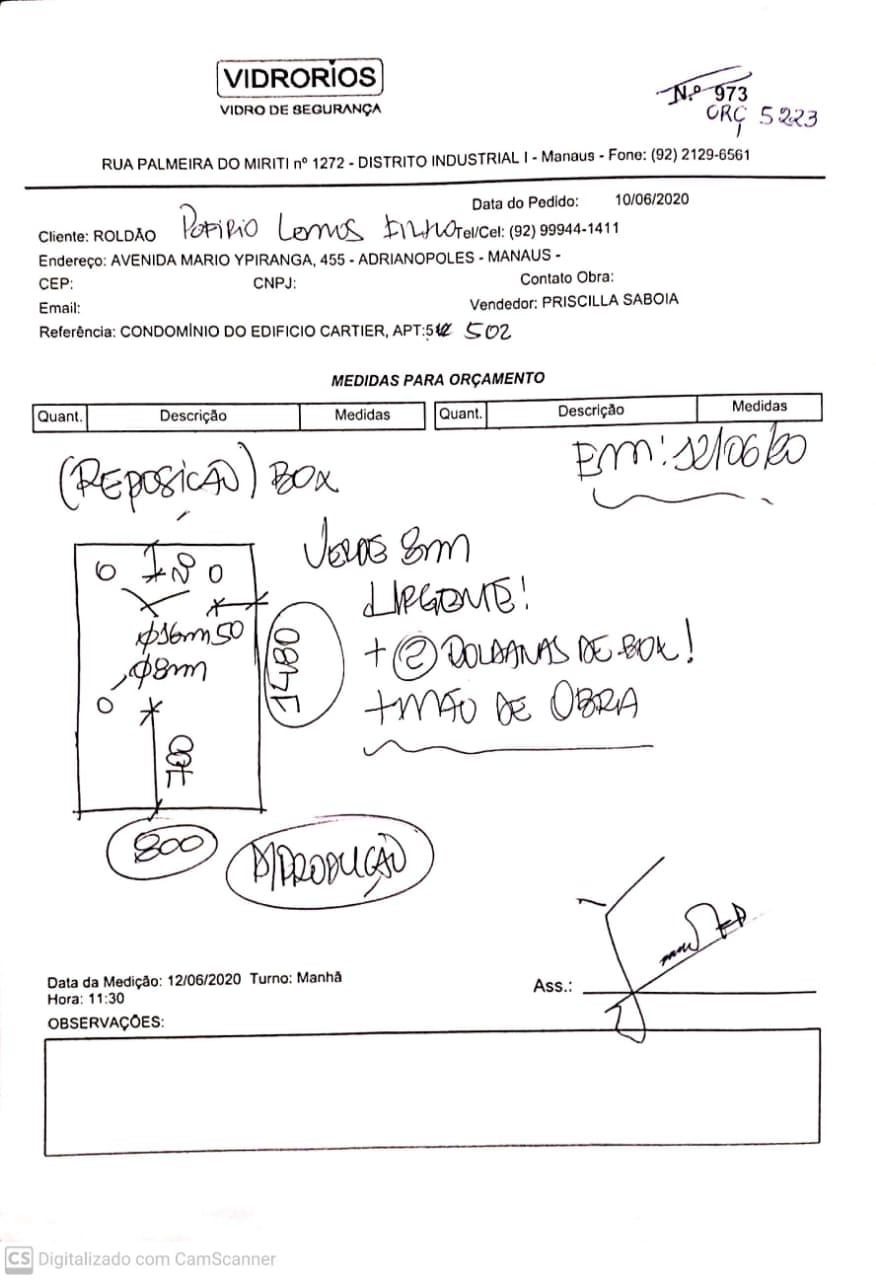 VIDRORIOS
VIDRO DE SEGURANÇA
N.º 973
ORÇ 5223
RUA PALMEIRA DO MIRITI nº 1272 - DISTRITO INDUSTRIAL I - Manaus - Fone: (92) 2129-6561
Data do Pedido: 10/06/2020
Cliente: ROLDÃO POFIRIO Lemos FILHO Tel/Cel: (92) 99944-1411
Endereço: AVENIDA MARIO YPIRANGA, 455 - ADRIANOPOLES - MANAUS -
CEP: CNPJ: Contato Obra:
Email: Vendedor: PRISCILLA SABOIA
Referência: CONDOMÍNIO DO EDIFICIO CARTIER, APT: 502
MEDIDAS PARA ORÇAMENTO
Quant. Descrição Medidas Quant. Descrição Medidas
EM: 12/06/20
(REPOSIÇÃO) BOX
VERDE 8mm
URGENTE!
+ 2 ROLDANAS DE BOX!
+ MÃO DE OBRA
1480
Ø16m 50
Ø8m
800
P/PRODUÇÃO
Data da Medição: 12/06/2020 Turno: Manhã
Hora: 11:30
Ass.:
OBSERVAÇÕES:
CS Digitalizado com CamScanner